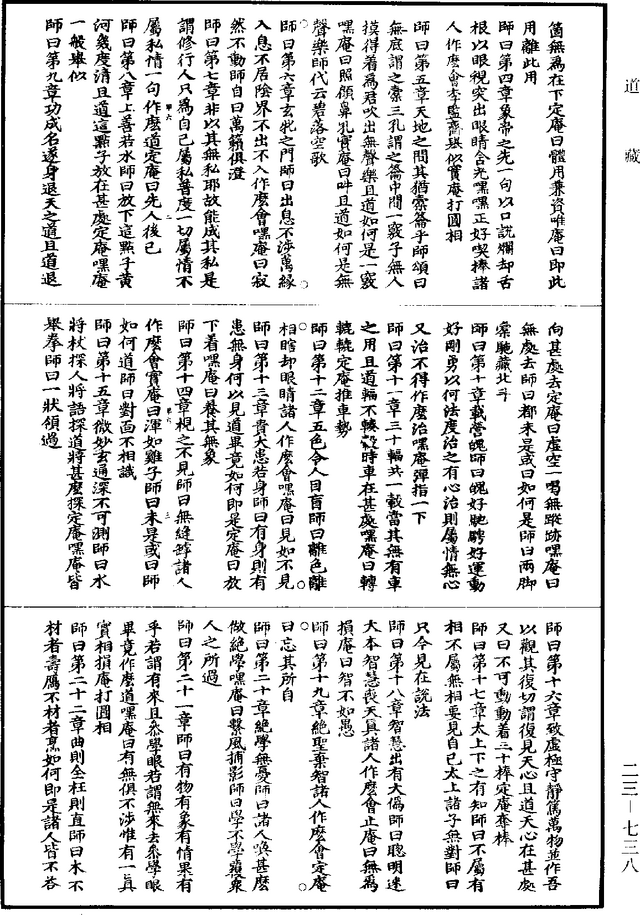 道藏
箇無為在下定庵曰體用兼資唯庵曰即此
用離此用
師曰第四章象帝之先一句以口說爛却舌
根以眼視突出眼睛含光嘿嘿正好喫捧諸
人作麼會李監齋舉似實庵打圓相
師曰第五章天地之間其猶橐籥乎師頌曰
無底謂之橐三孔謂之籥中間一竅子無人
摸得着為君吹出無聲樂且道如何是一竅
嘿庵曰照顧鼻孔實庵曰吽且道如何是無
聲樂師代云碧落空歌
師曰第六章玄牝之門師曰出息不涉萬緣
入息不居陰界不出不入作麼會嘿庵曰寂
然不動師自曰萬籟俱澄
師曰第七章非以其無私耶故能成其私是
謂修行人只為自己屬私普度一切屬情不
屬私情一句作麼道定庵曰先人後己
師曰第八章上善若水師曰放下這點子黃
河幾度清且道這點子放在甚處定庵嘿庵
一般舉似
師曰第九章功成名遂身退天之道且道退
向甚處去定庵曰虛空一喝無蹤跡嘿庵曰
無處去師曰都未是或曰如何是師曰兩脚
橐駞藏北斗
師曰第十章載營魄師曰魄好馳騁好運動
好剛勇以何法度治之有心治則屬情無心
又治不得作麼治嘿庵彈指一下
師曰第十一章三十輻共一轂當其無有車
之用且道輻不輳轂時車在甚處嘿庵曰轉
轆轆定庵推車勢
師曰第十二章五色令人目盲師曰離色離
相瞎却眼睛諸人作麼會嘿庵曰見如不見
師曰第十三章貴大患若身師曰有身則有
患無身何以見道畢竟如何即是定庵曰放
下着嘿庵曰養其無象
師曰第十四章視之不見師曰無縫罅諸人
作麼會實庵曰渾如雞子師曰未是或曰師
如何道師曰對面不相識
師曰第十五章微妙玄通深不可測師曰水
將杖探人將語探道將甚麼探定庵嘿庵皆
舉拳師曰一狀領過
師曰第十六章致虛極守靜篤萬物並作吾
以觀其復切謂復見天心且道天心在甚處
又曰不可動動着三十棒定庵奪棒
師曰第十七章太上下之有知師曰不屬有
相不屬無相要見自己太上諸子無對師曰
只今見在說法
師曰第十八章智慧出有大偽師曰聰明迷
大本智慧喪天真諸人作麼會止庵曰無為
損庵曰智不如愚
師曰第十九章絕聖棄智諸人作麼會定庵
曰忘其所自
師曰第二十章絕學無憂師曰諸人喚甚麼
做絕學嘿庵曰繫風捕影師曰學不學復衆
人之所過
師曰第二十一章師曰有物有象有情果有
乎若謂有來且叅學眼若謂無來去叅學眼
畢竟作麼道嘿庵曰有無俱不涉惟有一真
實相損庵打圓相
師曰第二十二章曲則全枉則直師曰木不
材者壽鴈不材者烹如何即是諸人皆不荅
二三—七三八